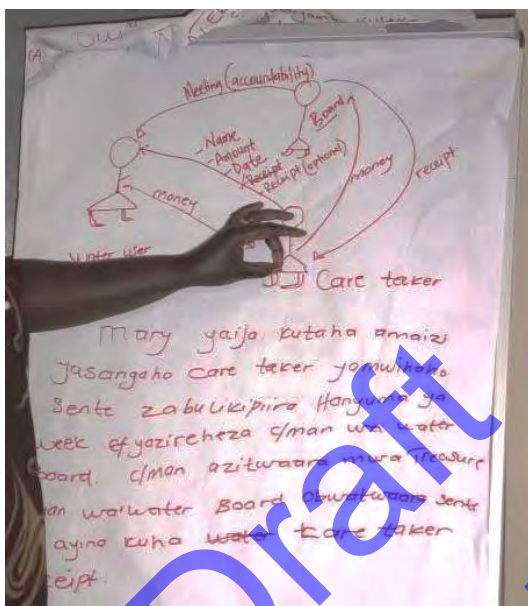 Meeting (accountability)
Board
- Name
- Amount
- Date
- Receipt
Receipt (optional)
money
receipt
money
water user
Care taker
Mary yaija kutaha amaizi
yasangaho care taker yamwihaho
Sente zabulikipiira Hanyuma ya
week ef yazireheza c/man wa water
board. c/man azitwaara mwa Treasure
wa'water Board obwatwaara sente
ayina kuha water care taker
eipt.
Draft